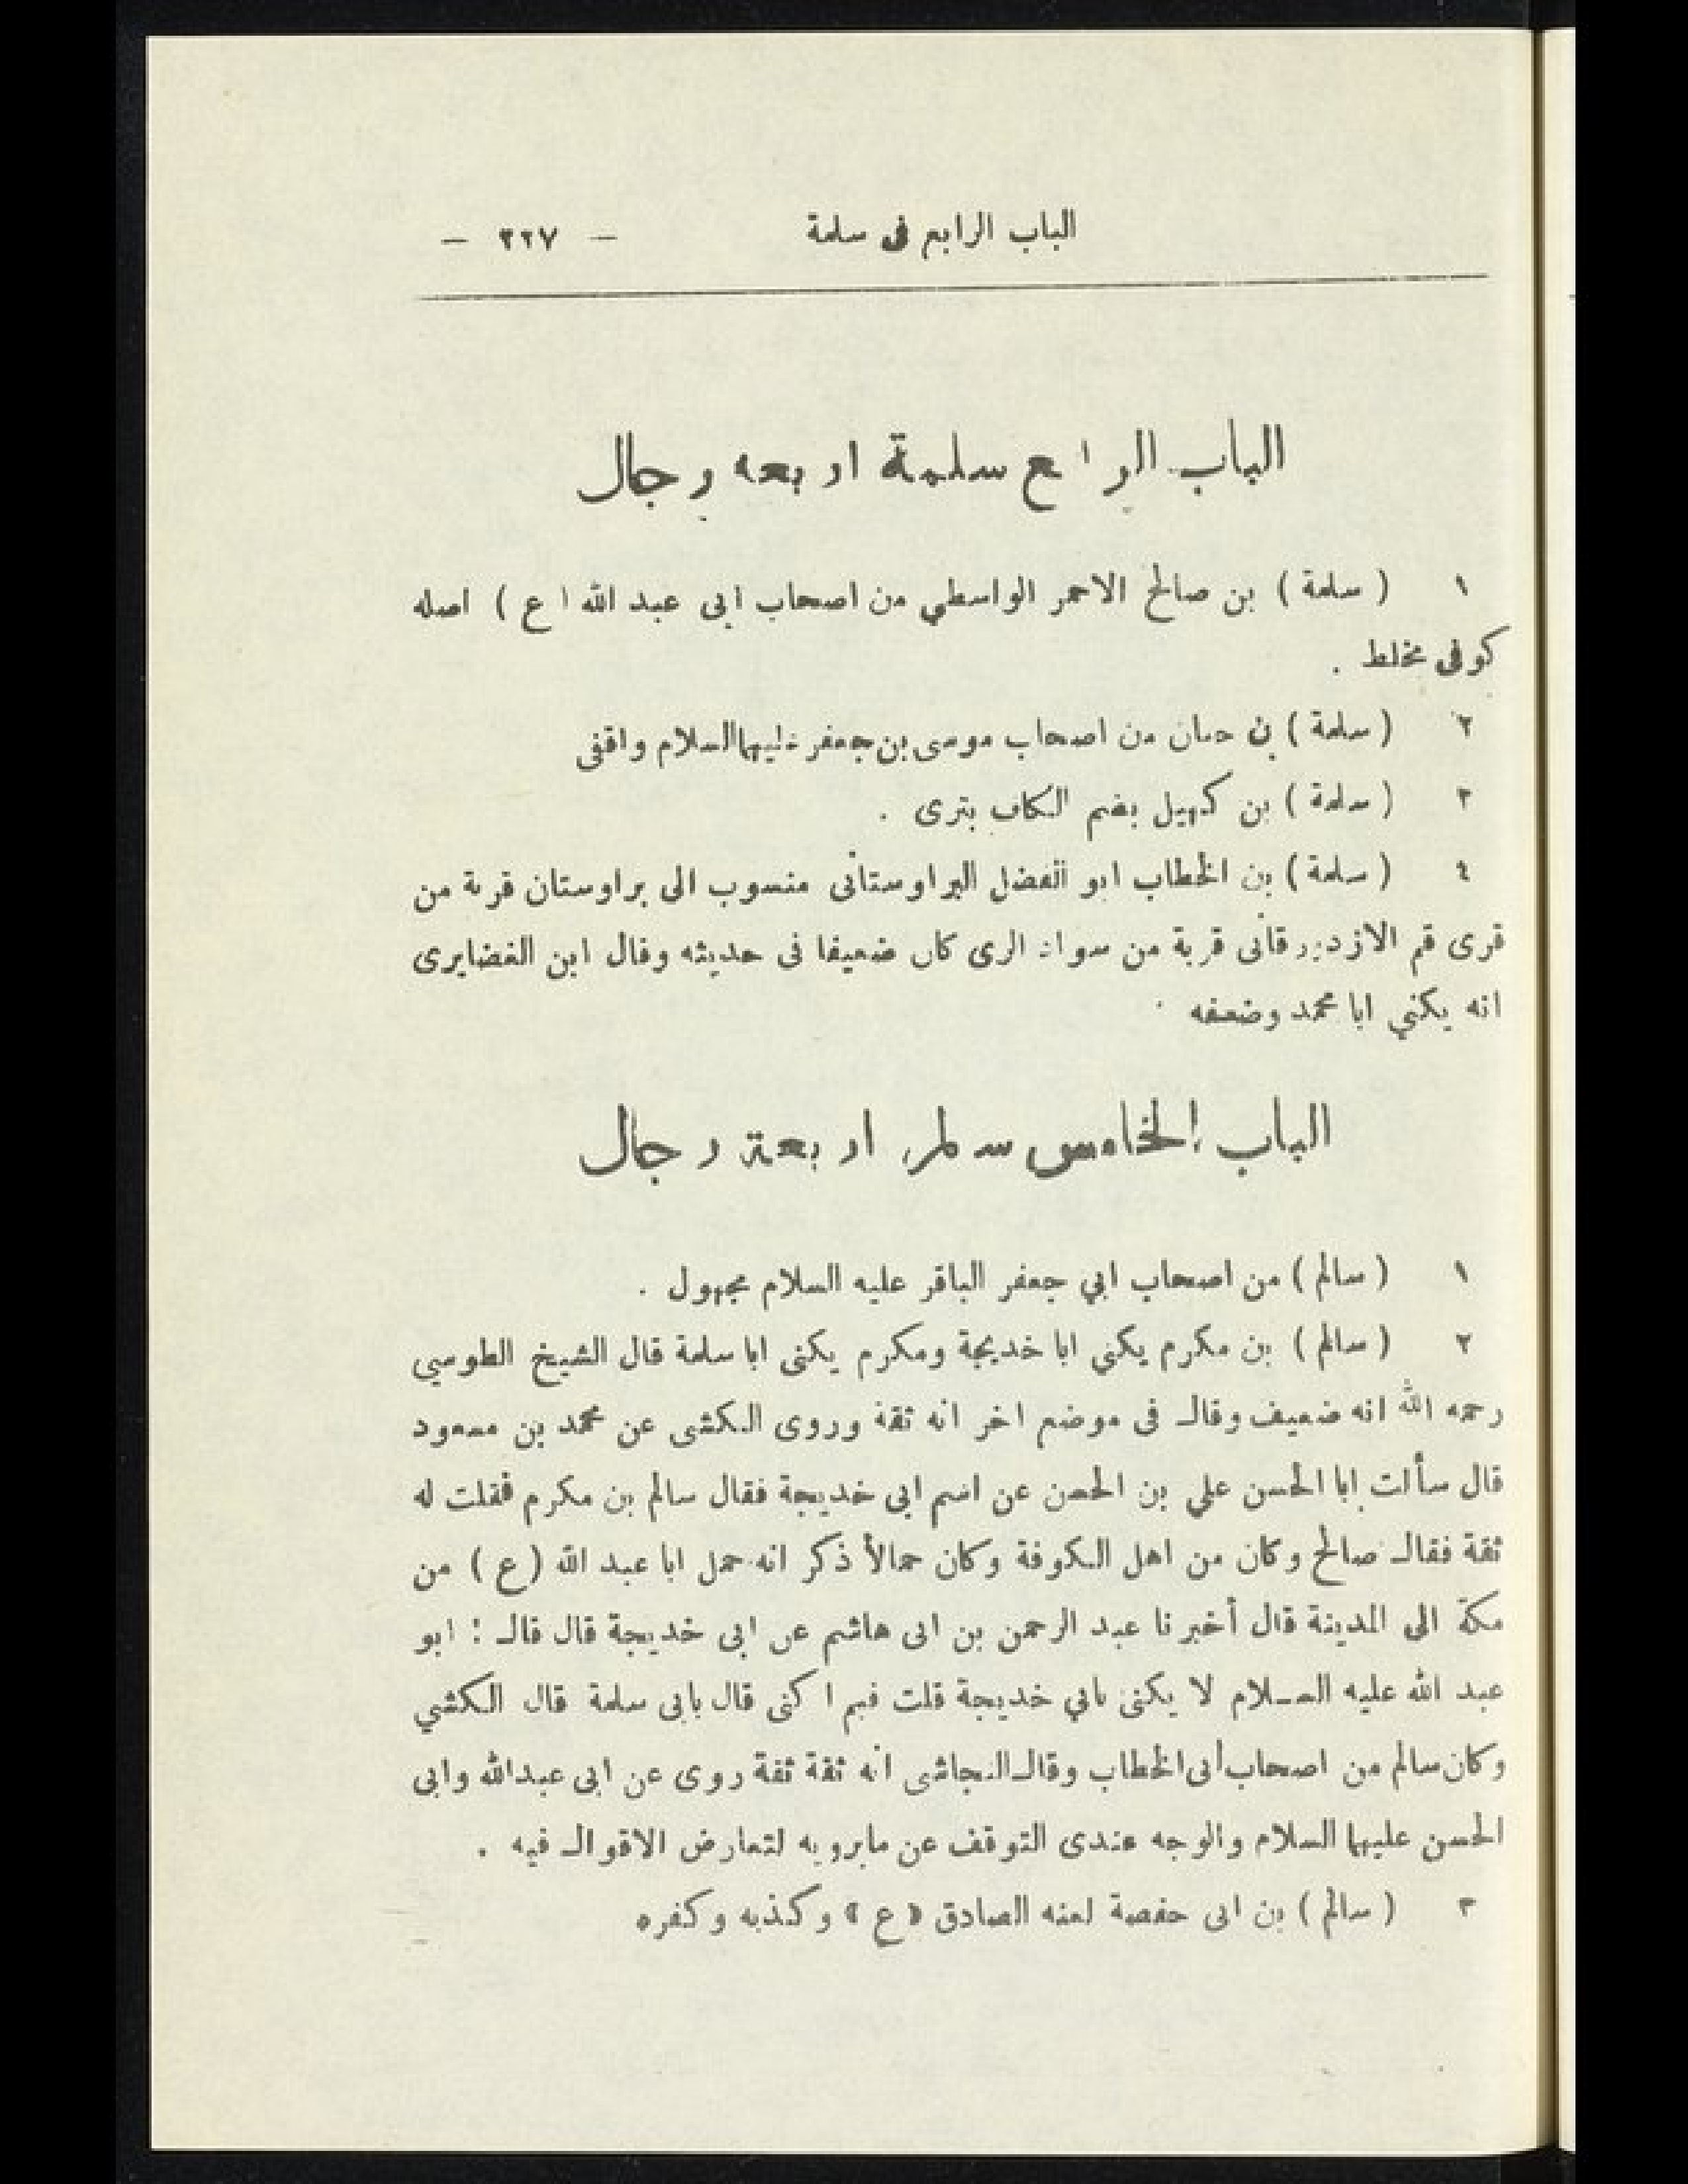 الباب الرابع فى سلمة — ٢٢٧ —
الباب الرابع سلمة اربعة رجال
١ ( سلمة ) بن صالح الاحمر الواسطي من اصحاب ابى عبد الله ( ع ) اصله
كوفى مخلط .
٢ ( سلمة ) بن حيان من اصحاب موسى بن جعفر عليهما السلام واقفى
٣ ( سلمة ) بن كهيل بضم الكاف بترى .
٤ ( سلمة ) بن الخطاب ابو الفضل البراوستانى منسوب الى براوستان قرية من
قرى قم الازدورقانى قرية من سواد الرى كان ضعيفا فى حديثه وقال ابن الغضايرى
انه يكنى ابا محمد وضعفه .
الباب الخامس سالم اربعة رجال
١ ( سالم ) من اصحاب ابي جعفر الباقر عليه السلام مجهول .
٢ ( سالم ) بن مكرم يكنى ابا خديجة ومكرم يكنى ابا سلمة قال الشيخ الطوسي
رحمه الله انه ضعيف وقال فى موضع اخر انه ثقة وروى الكشى عن محمد بن مسعود
قال سألت ابا الحسن علي بن الحسن عن اسم ابى خديجة فقال سالم بن مكرم فقلت له
ثقة فقال صالح وكان من اهل الكوفة وكان حمالأ ذكر انه حمل ابا عبد الله ( ع ) من
مكة الى المدينة قال أخبرنا عبد الرحمن بن ابى هاشم عن ابى خديجة قال قال : ابو
عبد الله عليه السلام لا يكنى بابي خديجة قلت فبم اكنى قال بابى سلمة قال الكشي
وكان سالم من اصحاب أبى الخطاب وقال النجاشى انه ثقة ثقة روى عن ابى عبدالله وابى
الحسن عليهما السلام والوجه عندى التوقف عن مايرويه لتعارض الاقوال فيه .
٣ ( سالم ) بن ابى حفصة لعنه الصادق « ع » وكذبه وكفره